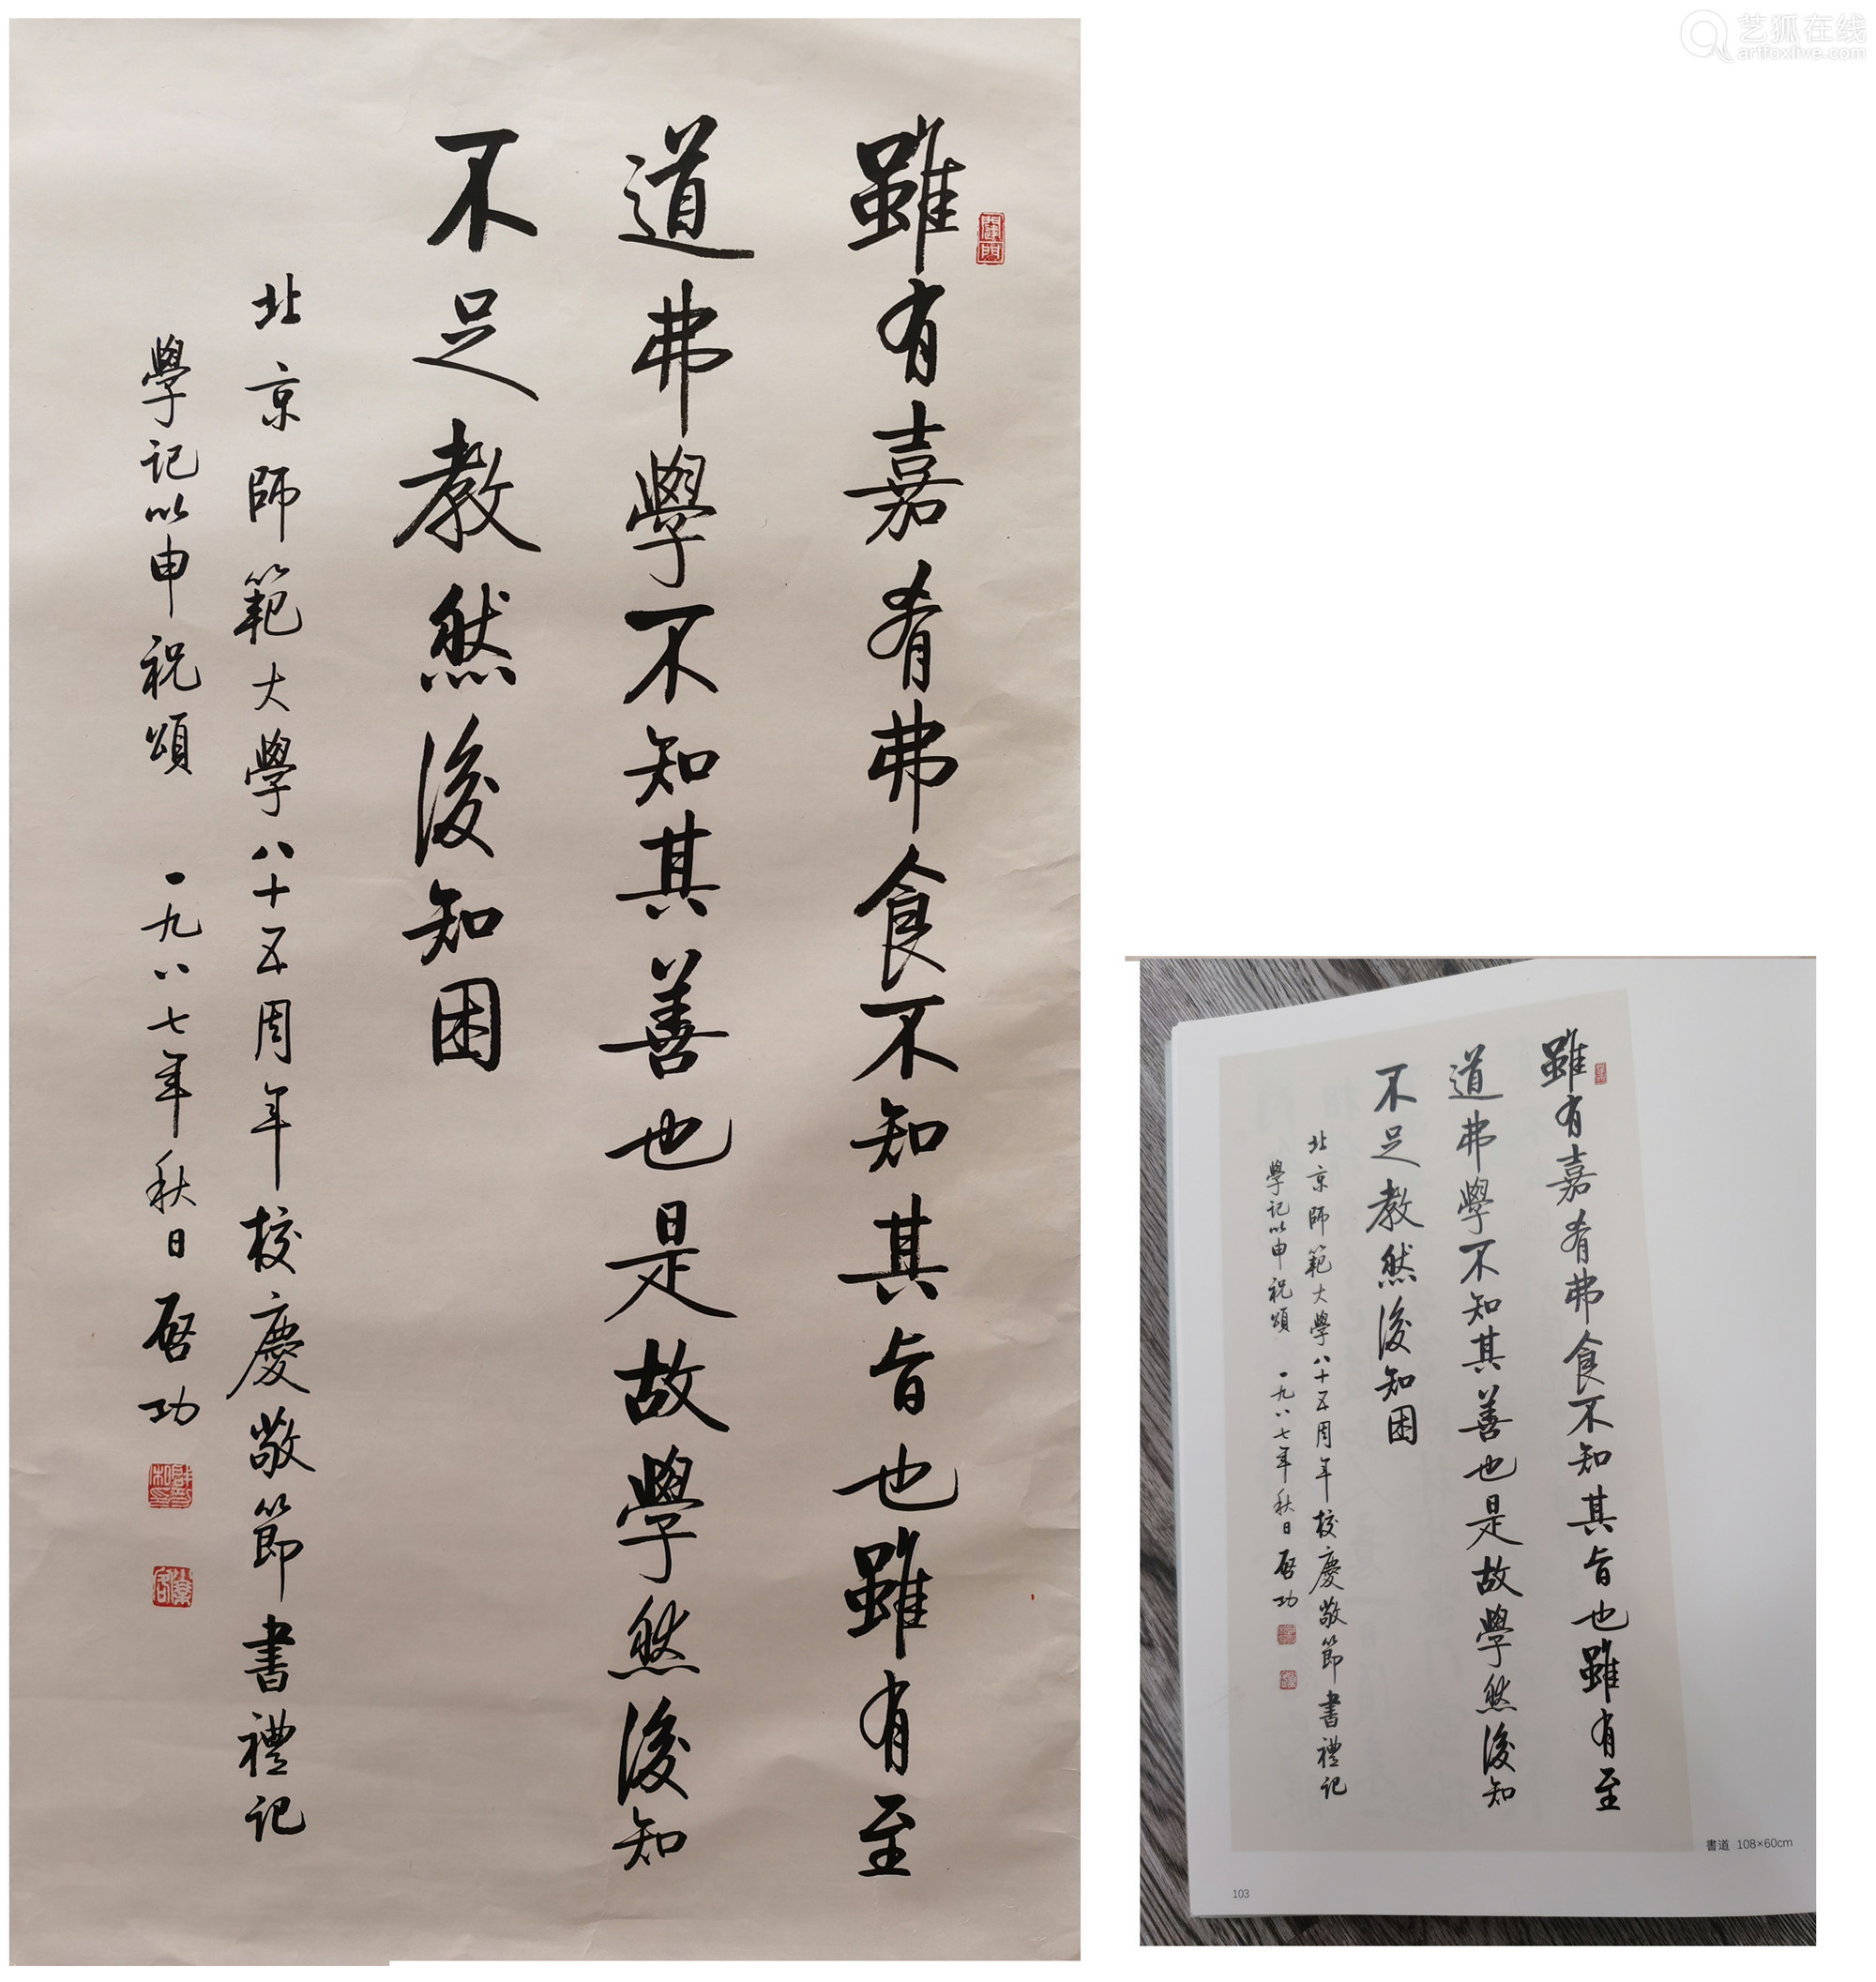 雖有嘉肴弗食不知其旨也雖有至
道弗學不知其善也是故學然後知
不足教然後知困
北京師範大學八十五周年校慶敬節書禮記
學記以申祝頌 一九八七年秋日 启功
艺狐在线
artfoxlive.com
雖有嘉肴弗食不知其旨也雖有至
道弗學不知其善也是故學然後知
不足教然後知困
北京師範大學八十五周年校慶敬節書禮記
學記以申祝頌 一九八七年秋日 启功
書道 108×60cm
103